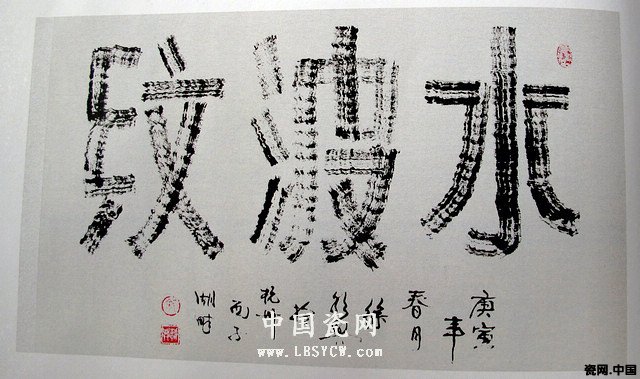 水波纹
庚寅
年
春月
徐
杭州
西子
湖畔
中国瓷网
www.LBSYCW.com
瓷网.中国